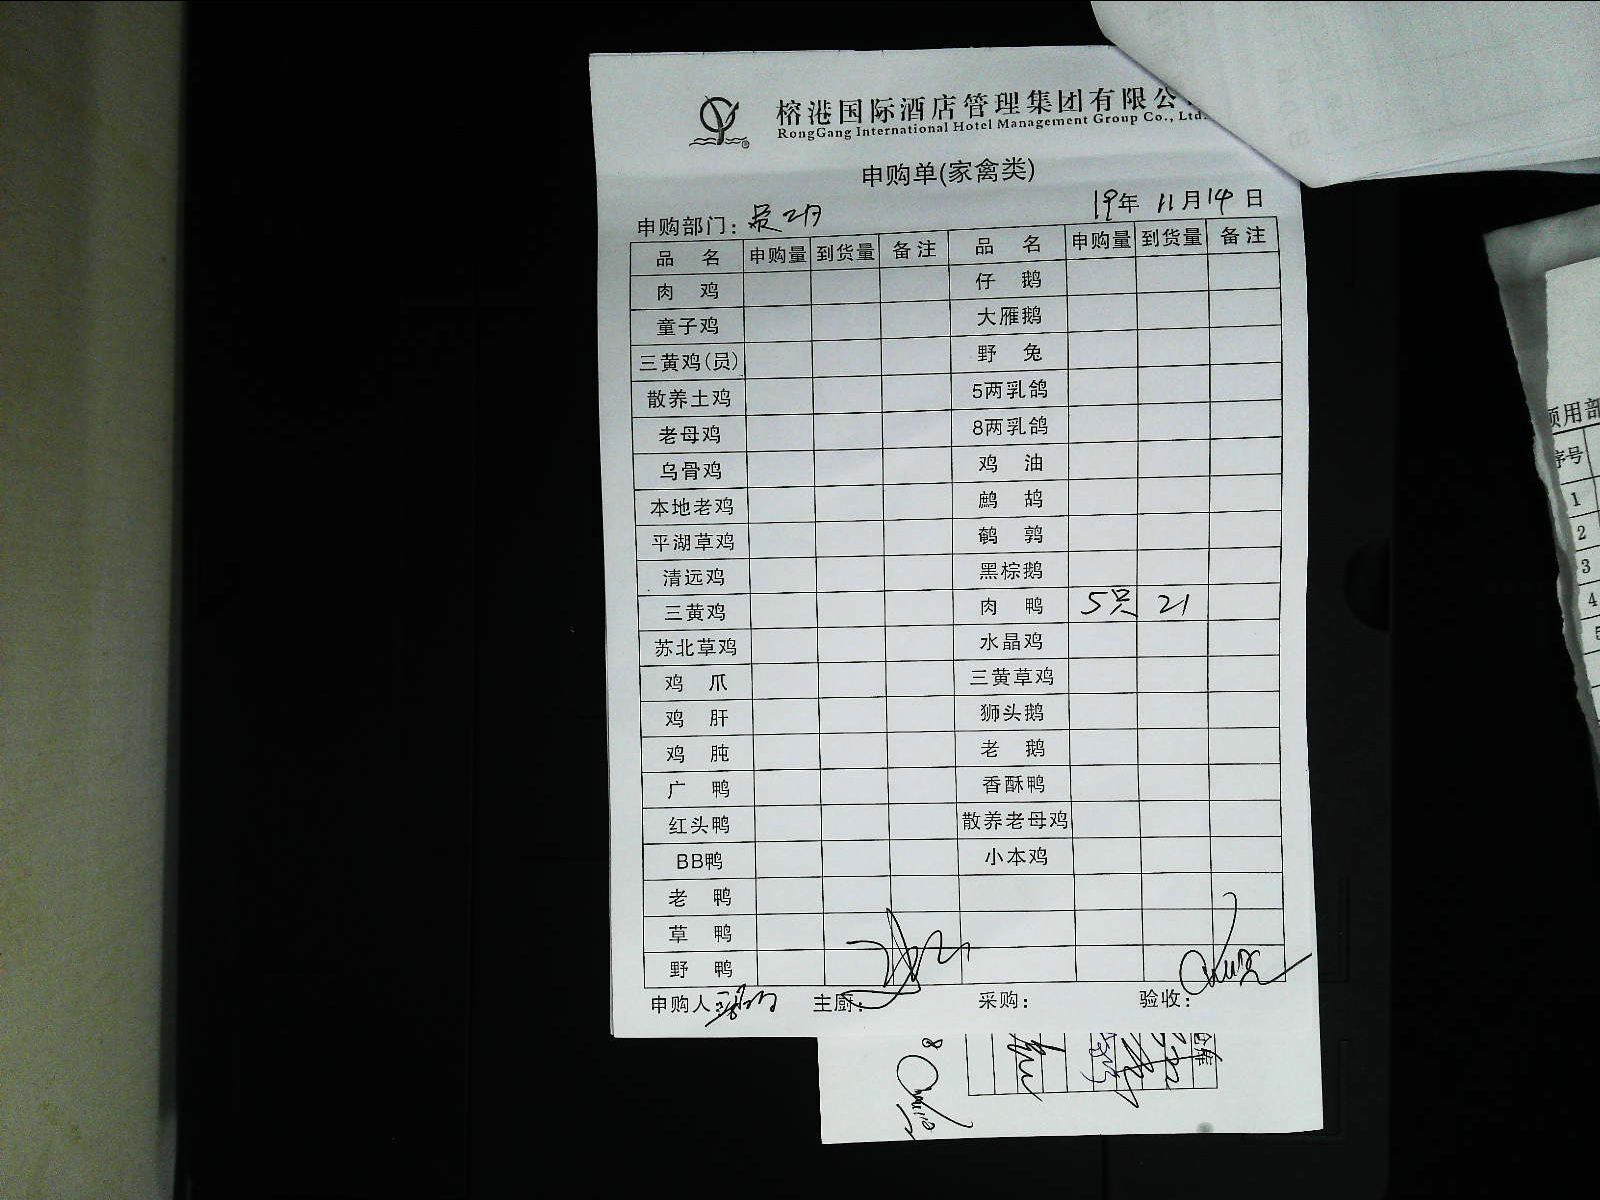 榕港国际酒店管理集团有限公
RongGang International Hotel Management Group Co., Ltd.
申购单(家禽类)
申购部门: 19年 11月14日
品 名 申购量 到货量 备注 品 名 申购量 到货量 备注
肉 鸡 仔 鹅
童子鸡 大雁鹅
三黄鸡(员) 野 兔
散养土鸡 5两乳鸽
老母鸡 8两乳鸽
乌骨鸡 鸡 油
本地老鸡 鹧 鸪
平湖草鸡 鹌 鹑
清远鸡 黑棕鹅
三黄鸡 肉 鸭 5只 21
苏北草鸡 水晶鸡
鸡 爪 三黄草鸡
鸡 肝 狮头鹅
鸡 肫 老 鹅
广 鸭 香酥鸭
红头鸭 散养老母鸡
BB鸭 小本鸡
老 鸭
草 鸭
野 鸭
申购人: 主厨: 采购: 验收:
8
领用部
序号
1
2
3
4
5